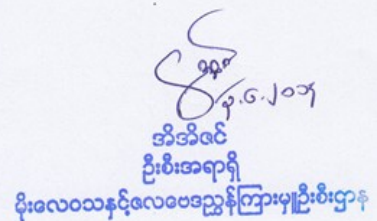 အိအိဇင်
ဦးစီးအရာရှိ
မိုးလေဝသနှင့်ဇလဗေဒညွှန်ကြားမှုဦးစီးဌာန